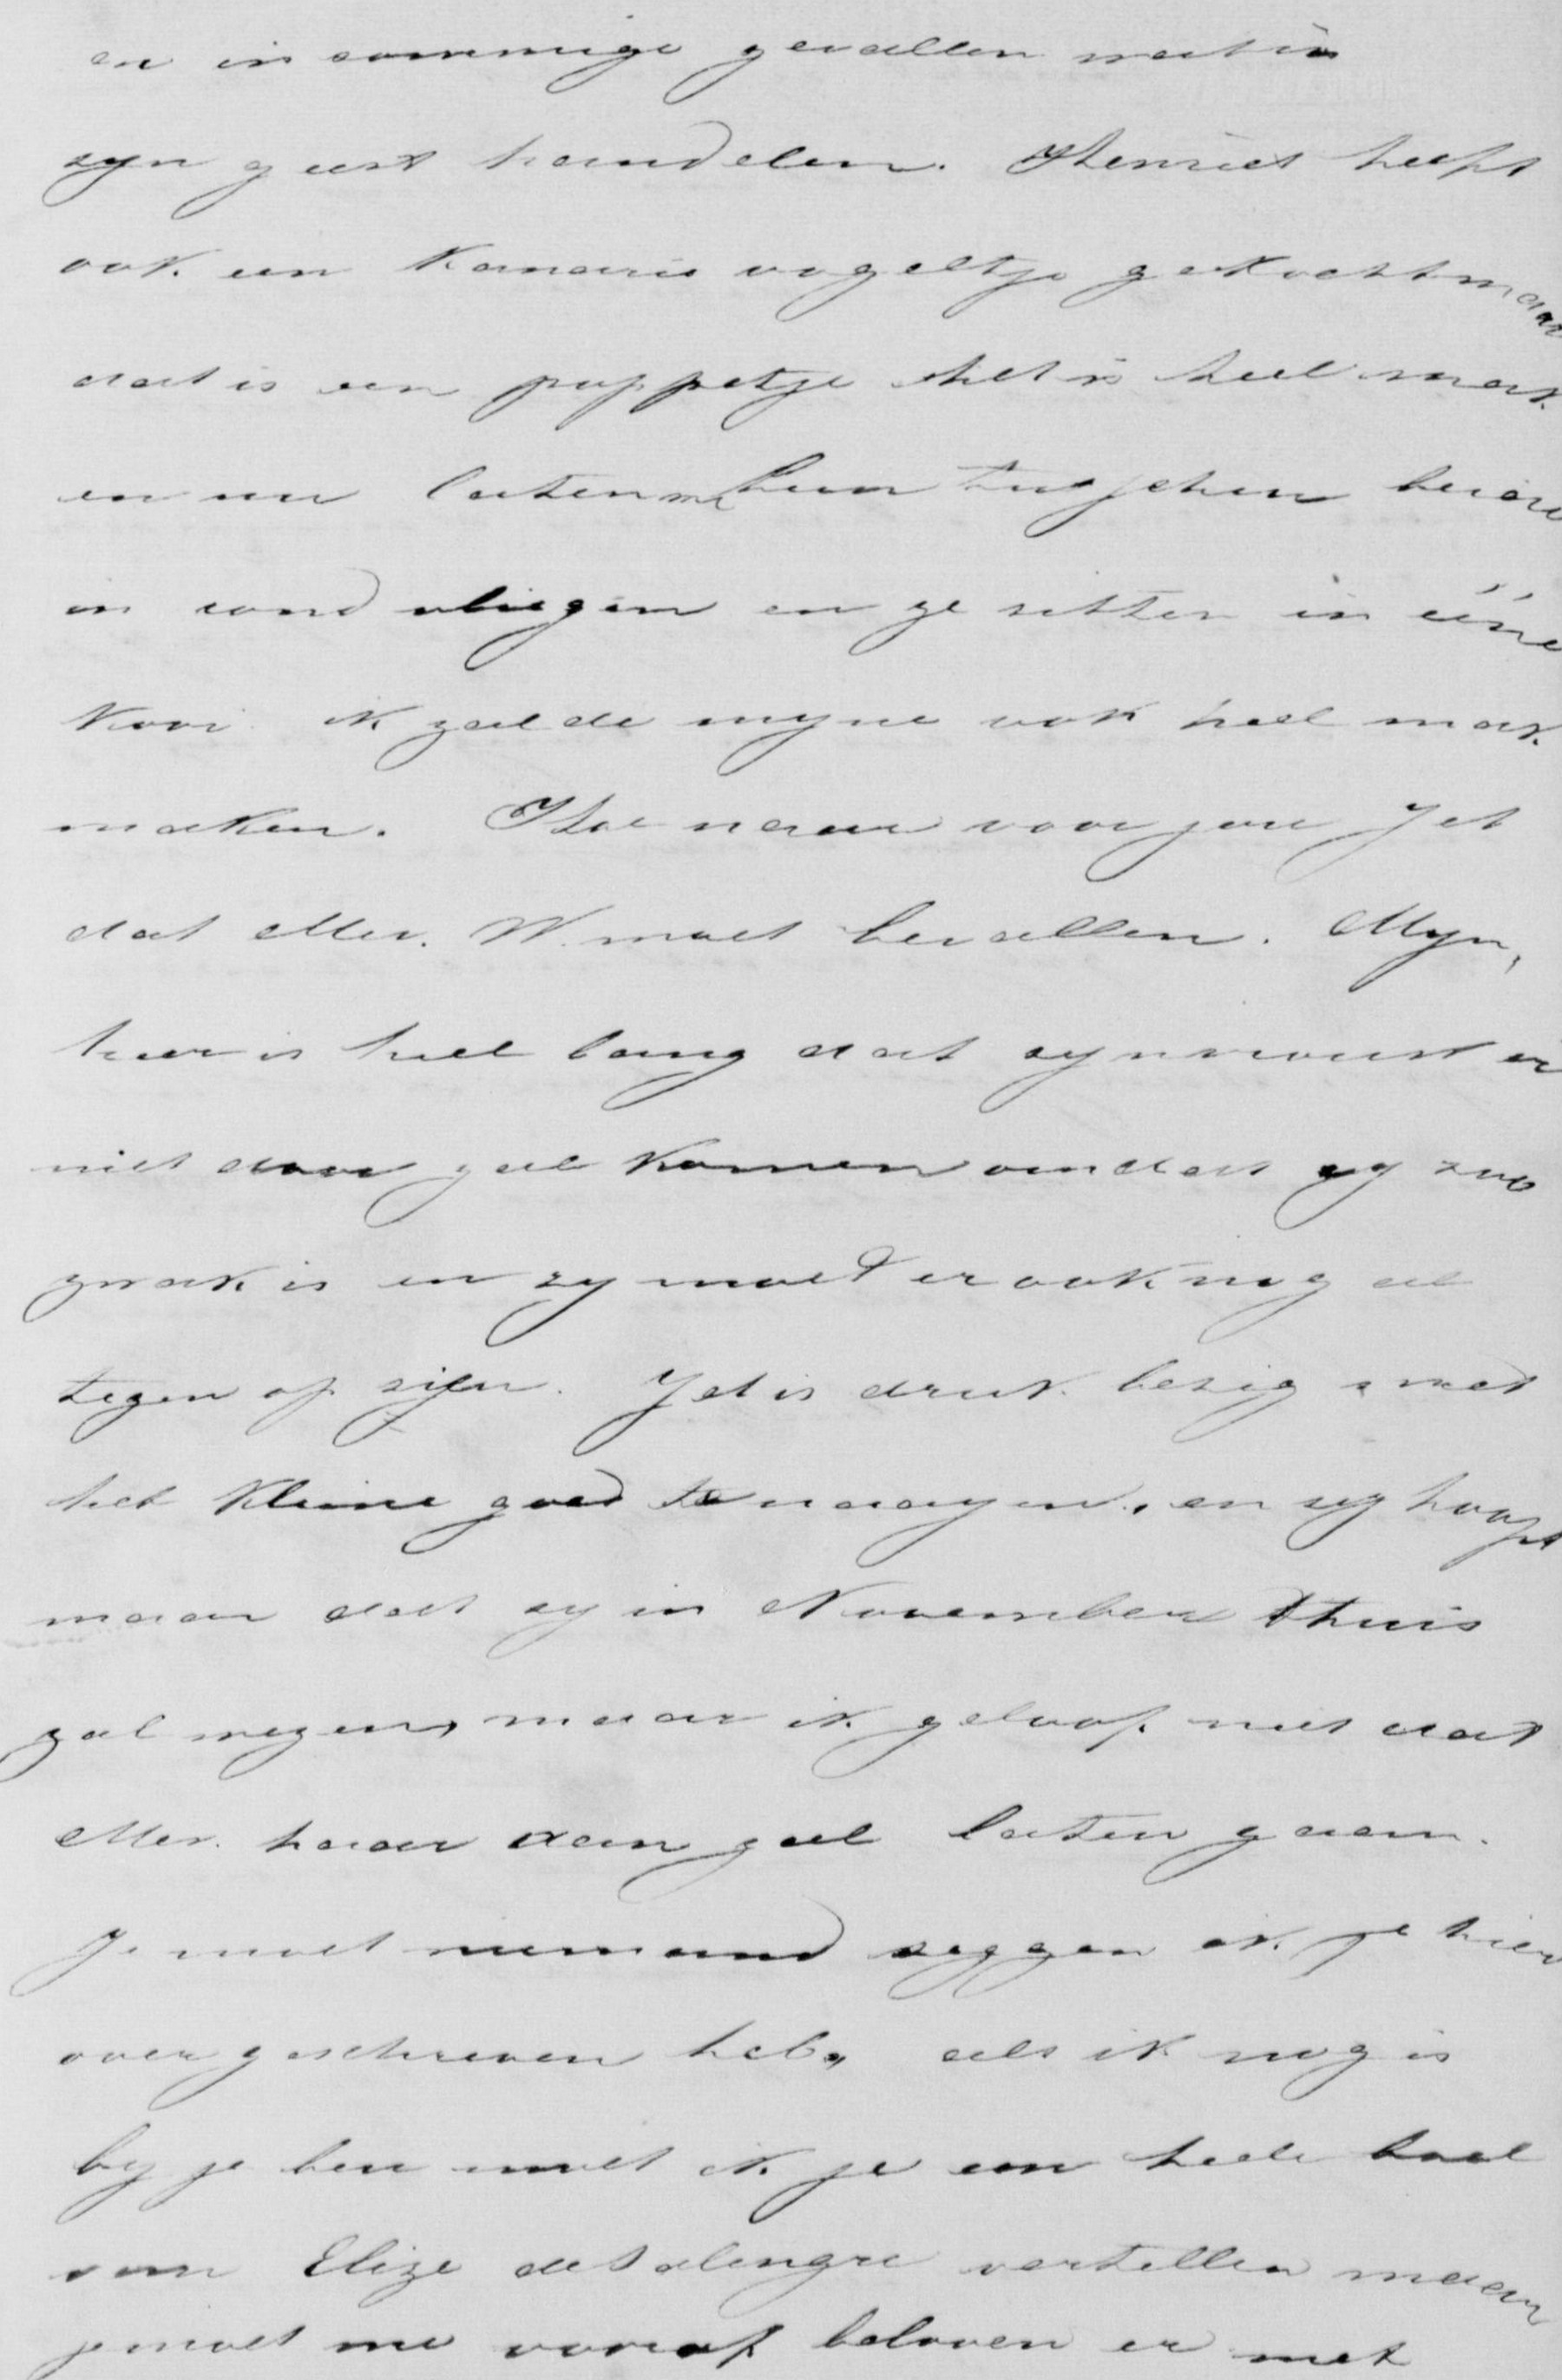 en in sommige gevallen wat in
zyn geest handelen. Henriet heeft
ook een Kanarie vogeltje gekocht maar
dat is een poppetje het is heel mak
en nu laten we hun tusschen beiden
in rond vliegen en ze zitten in ééne
Kooi ik zal de myne ook heel mak
maken. Hoe naar voor jou Jet
dat Mev. W. moet bevallen. Myn,
heer is heel bang dat zyn vrouw er
niet door zal komen omdat zy zoo
zwak is en zy moet er ook nog al
tegen op zien. Jet is druk bezig met
het kleine goed te naayen, en zy hoopt
maar dat zy in November thuis
zal mogen, maar ik geloof niet dat
Mev. haar dan zal laten gaan.
Je moet niemand zeggen ik je hier
over geschreven heb, als ik nog is
by je ben moet ik je een heele boel
van Elize vertellen maar
je moet me vooraf beloven er met